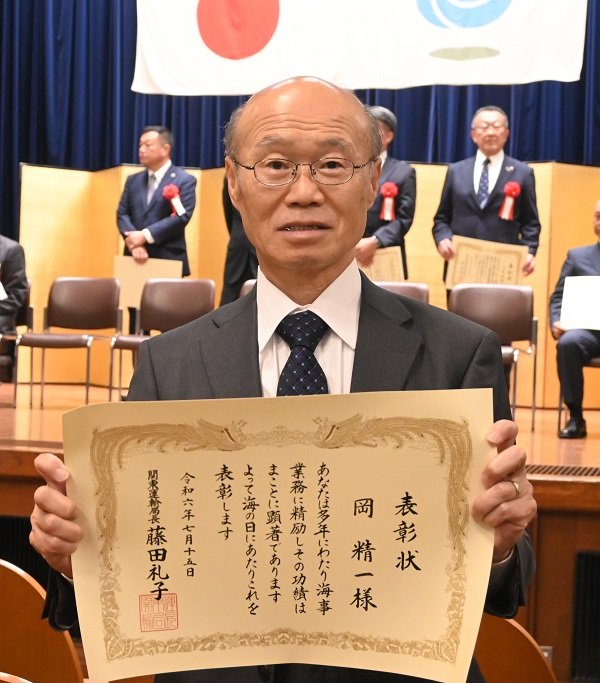 表彰状
岡 精一様
あなたは多年にわたり海事
業務に精励しその功績は
まことに顕著であります
よって海の日にあたりこれを
表彰します
令和六年七月十五日
関東運輸局長 藤田礼子